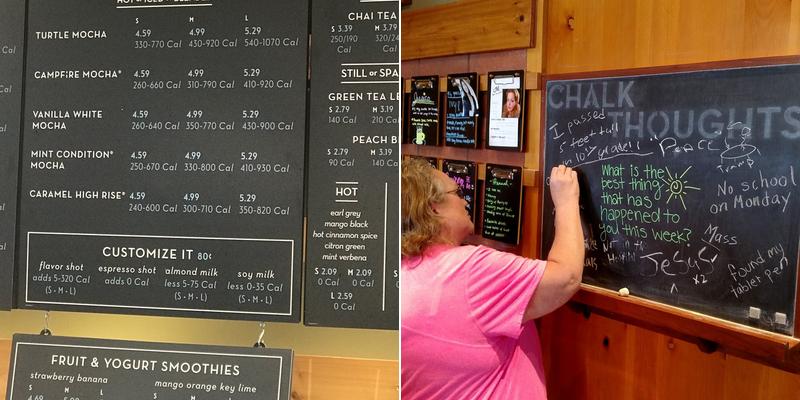 S M L
TURTLE MOCHA 4.59 4.99 5.29
330-770 Cal 430-920 Cal 540-1070 Cal
CAMPFIRE MOCHA* 4.59 4.99 5.29
260-660 Cal 310-790 Cal 410-920 Cal
VANILLA WHITE MOCHA 4.59 4.99 5.29
260-640 Cal 350-770 Cal 430-900 Cal
MINT CONDITION* MOCHA 4.59 4.99 5.29
250-670 Cal 330-800 Cal 410-930 Cal
CARAMEL HIGH RISE* 4.59 4.99 5.29
240-600 Cal 300-710 Cal 350-820 Cal
CUSTOMIZE IT 80¢
flavor shot espresso shot almond milk soy milk
adds 5-320 Cal adds 0 Cal less 5-75 Cal less 0-35 Cal
(S • M • L) (S • M • L) (S • M • L)
FRUIT & YOGURT SMOOTHIES
strawberry banana mango orange key lime
S M L S M L
CHAI TEA
S 3.39
250/190 Cal
STILL or SPA
GREEN TEA
S 2.79 M 3.19
140 Cal 210
PEACH B
S 2.79 M 3.19
90 Cal 140
HOT
earl grey
mango black
hot cinnamon spice
citron green
mint verbena
S 2.09 M 2.09
0 Cal 0 Cal
L 2.59
0 Cal
CHALK
THOUGHTS
I passed
5 feet tall
Peace
What is the
best thing
that has
happened to
you this week?
No school
on Monday
Mass
Jesus
x2
found my
tablet pen